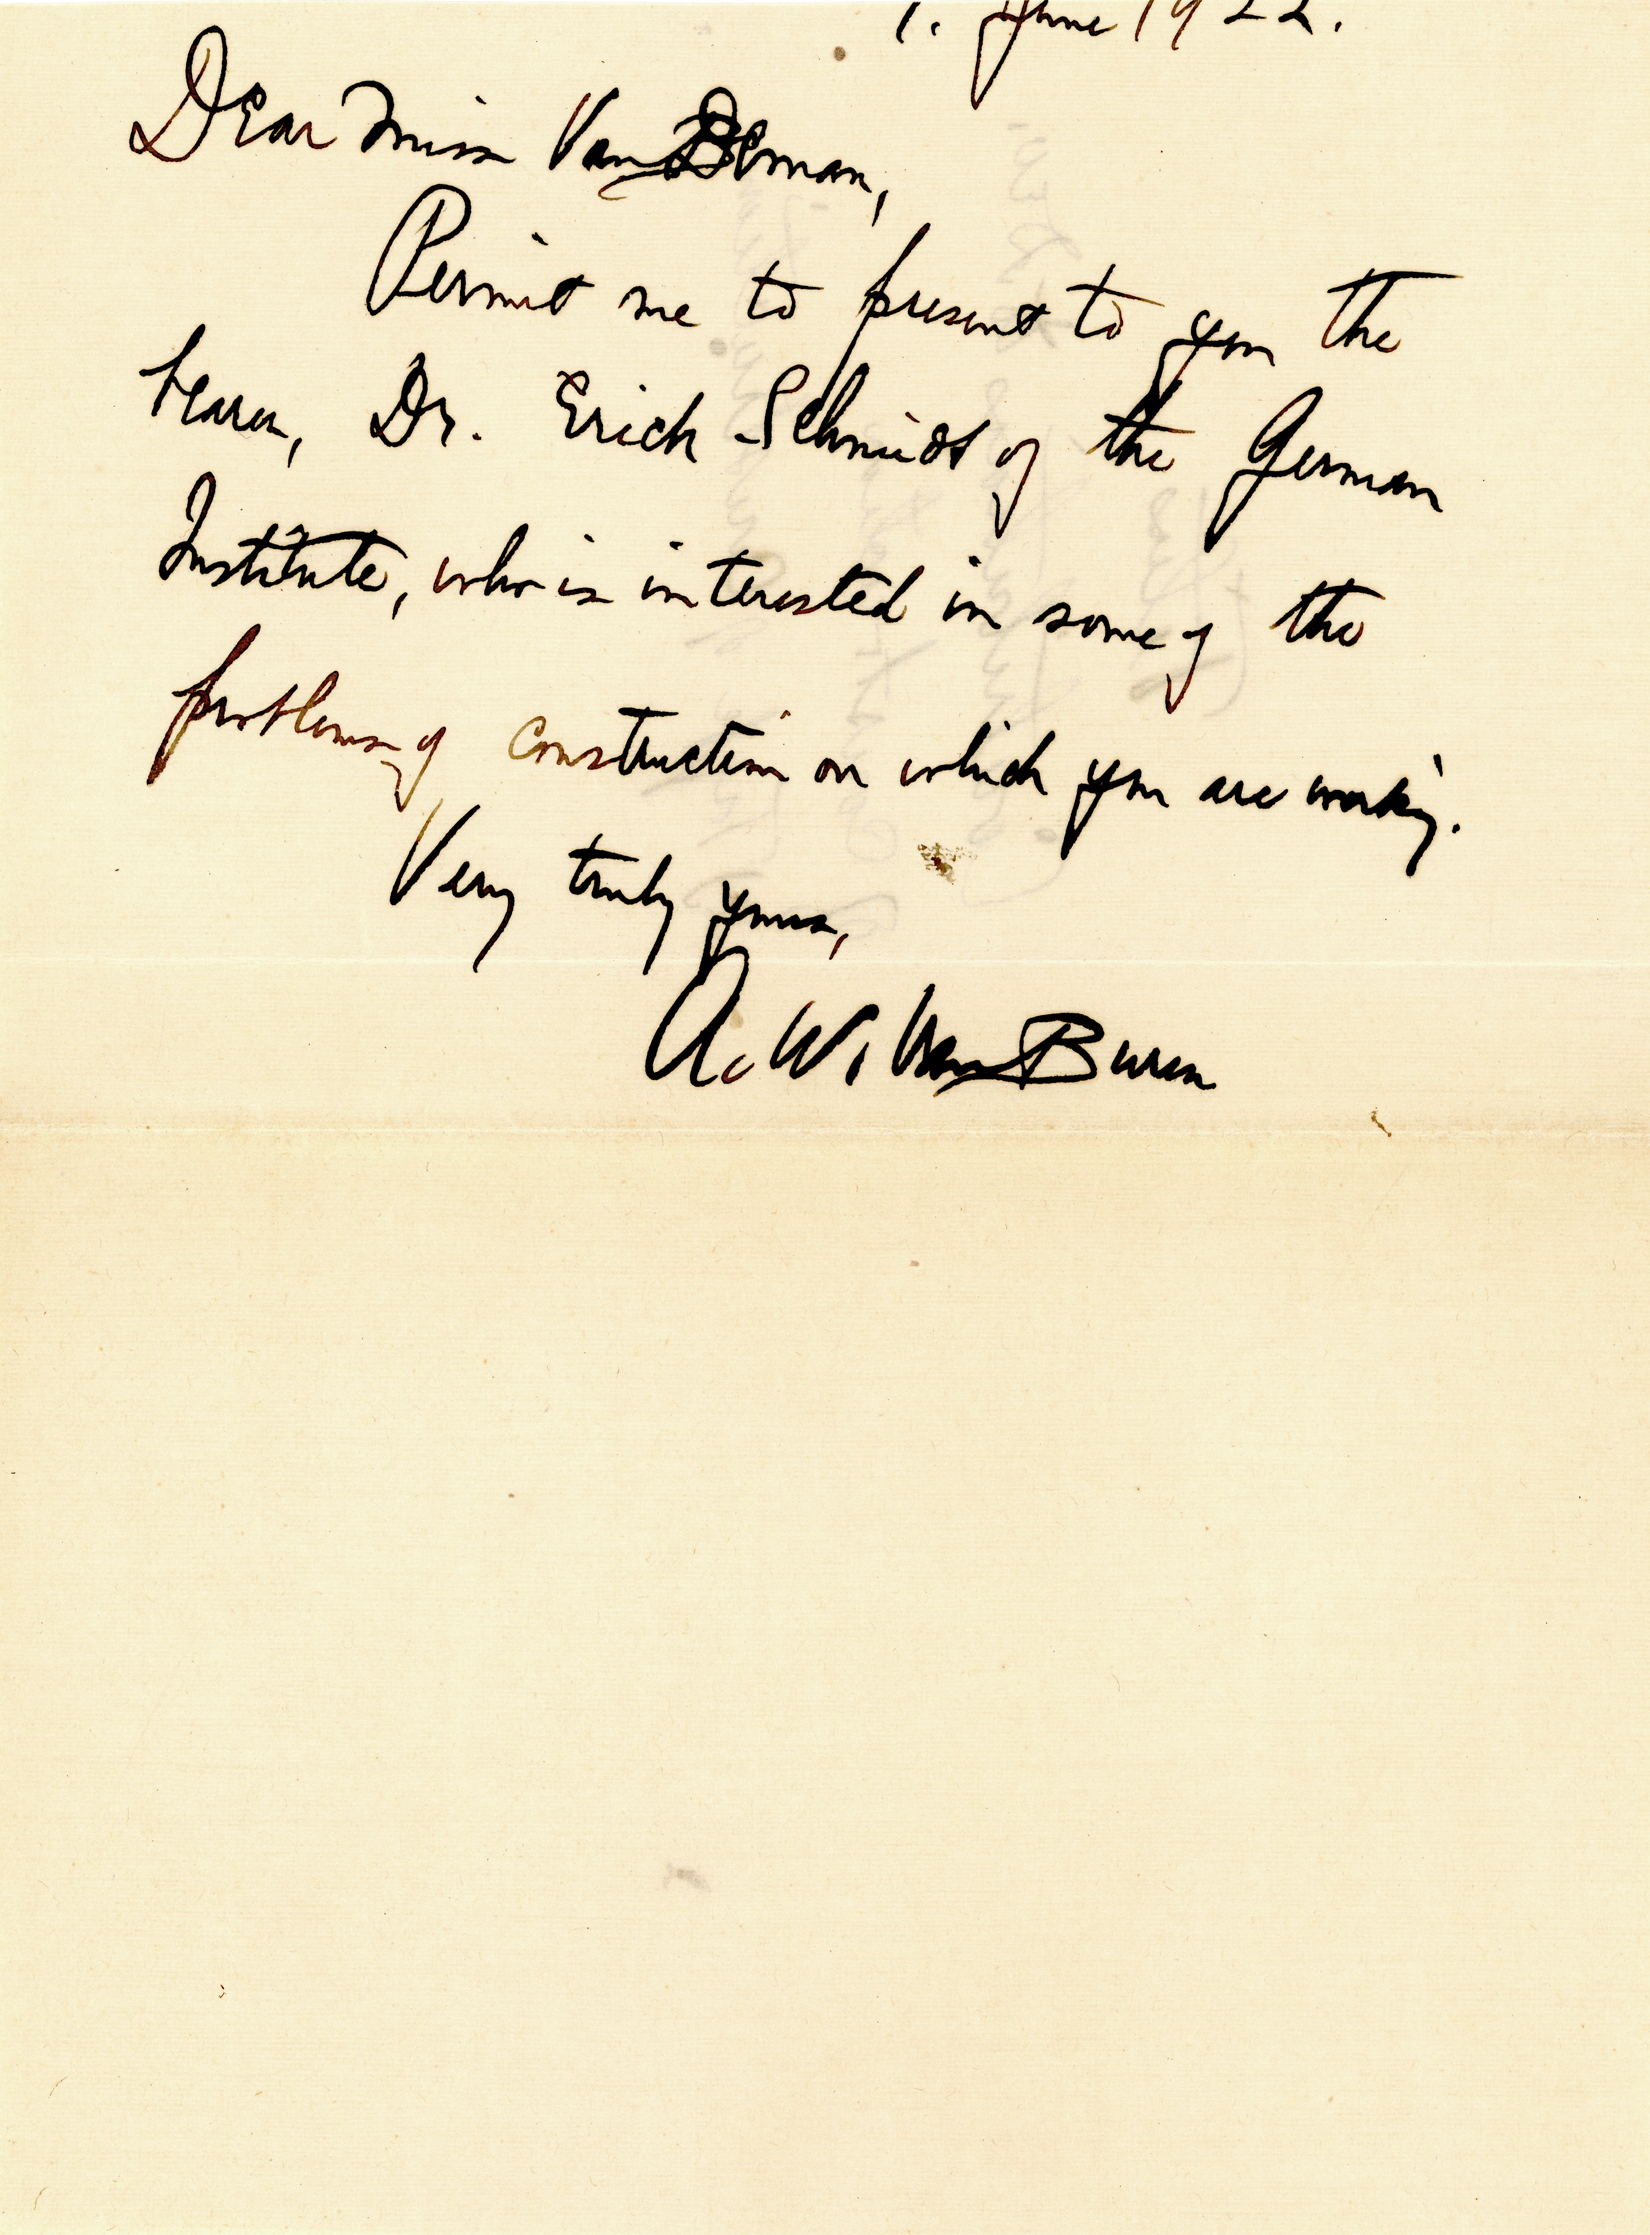 1. June 1922.
Dear Miss Van Deman,
Permit me to present to you the
bearer, Dr. Erich Schmidt of the German
Institute, who is interested in some of the
problems of construction on which you are working.
Very truly yours,
A. W. Van Buren